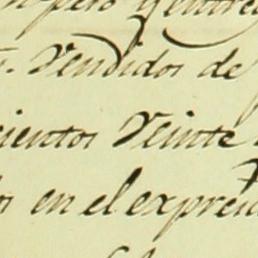 pero y entre
Vendidos de
cientos Veinte
en el expre